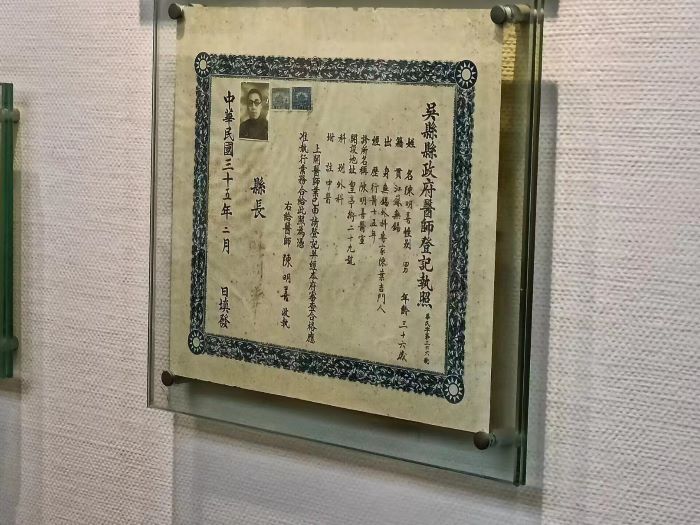 吳縣縣政府醫師登記執照
姓名陳明善性別 男 年齡三十六歲
籍貫江蘇無錫
出身無錫外科專家陳葉吉門人
經歷行醫十五年
診所名稱陳明善醫室
開設地址皇亭街二十九號
科別外科
增註中醫
上開醫師業已申請登記並經本府審查合格應
准執行業務合給此照為憑
右給醫師 陳明善 收執
縣長
中華民國三十五年二月 日填發